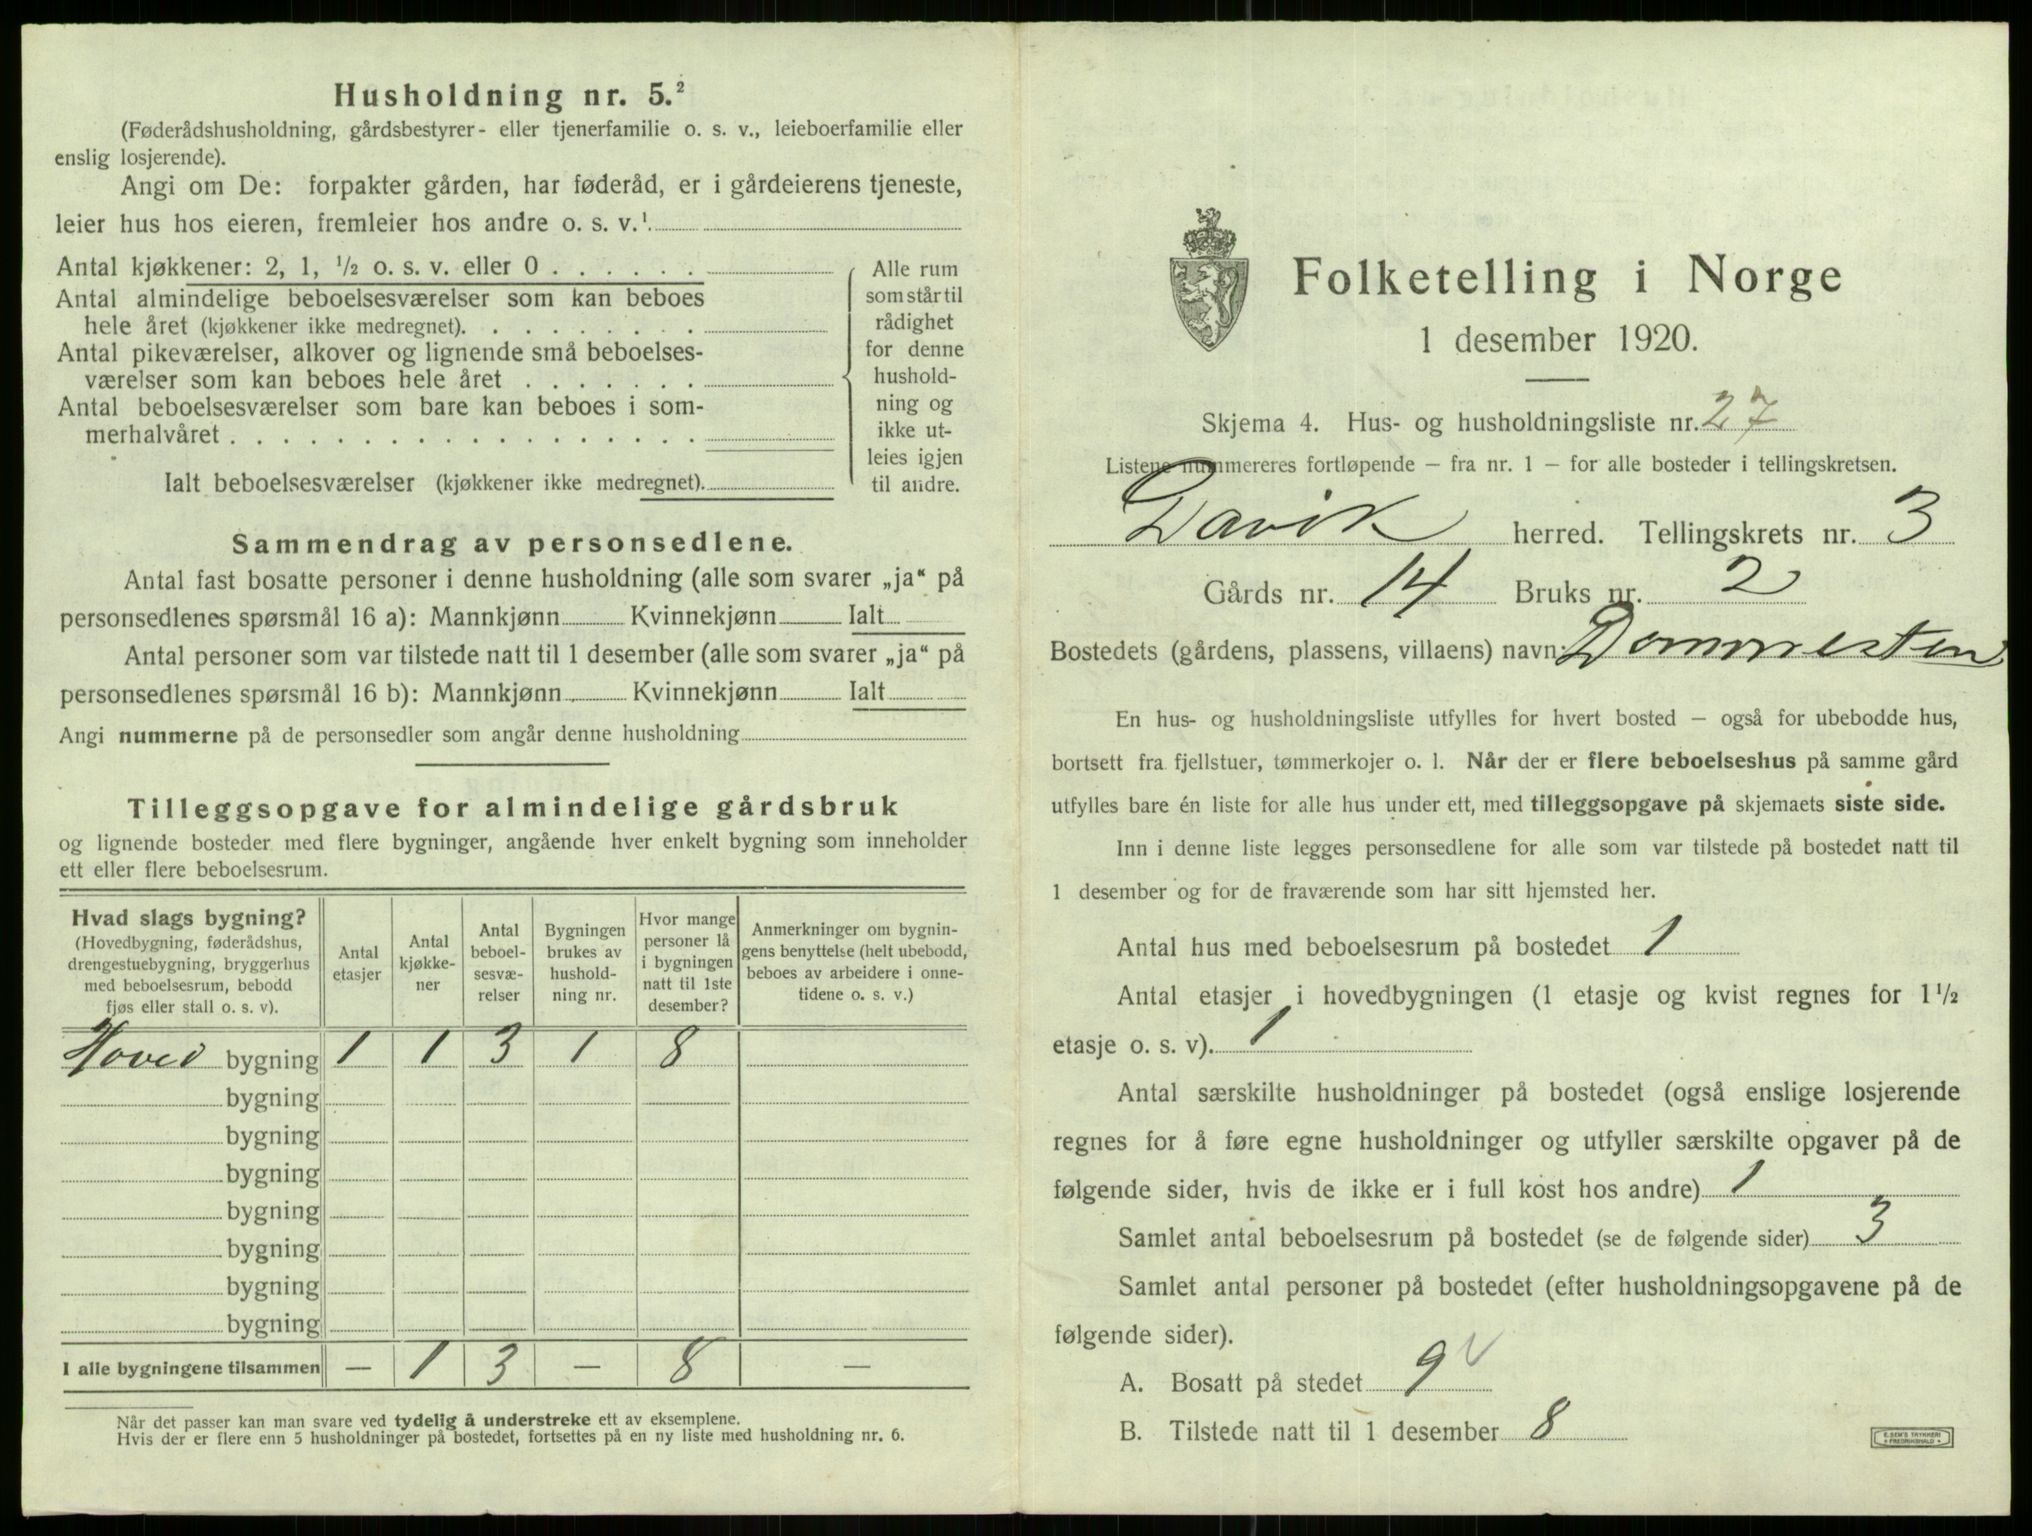 Husholdning nr. 5.²
(Føderådshusholdning, gårdsbestyrer- eller tjenerfamilie o. s. v., leieboerfamilie eller
enslig losjerende).
Angi om De: forpakter gården, har føderåd, er i gårdeierens tjeneste,
leier hus hos eieren, fremleier hos andre o. s. v.¹
Antal kjøkkener: 2, 1, ½ o. s. v. eller 0
Antal almindelige beboelsesværelser som kan beboes
hele året (kjøkkener ikke medregnet).
Antal pikeværelser, alkover og lignende små beboelses-
værelser som kan beboes hele året
Antal beboelsesværelser som bare kan beboes i som-
merhalvåret
Ialt beboelsesværelser (kjøkkener ikke medregnet).
Alle rum
som står til
rådighet
for denne
hushold-
ning og
ikke ut-
leies igjen
til andre.
Sammendrag av personsedlene.
Antal fast bosatte personer i denne husholdning (alle som svarer „ja“ på
personsedlenes spørsmål 16 a): Mannkjønn Kvinnekjønn Ialt
Antal personer som var tilstede natt til 1 desember (alle som svarer „ja“ på
personsedlenes spørsmål 16 b): Mannkjønn Kvinnekjønn Ialt
Angi nummerne på de personsedler som angår denne husholdning
Tilleggsopgave for almindelige gårdsbruk
og lignende bosteder med flere bygninger, angående hver enkelt bygning som inneholder
ett eller flere beboelsesrum.
Hvad slags bygning?
(Hovedbygning, føderådshus,
drengestuebygning, bryggerhus
med beboelsesrum, bebodd
fjøs eller stall o. s. v).
Antal
etasjer
Antal
kjøkke-
ner
Antal
beboel-
sesvæ-
relser
Bygningen
brukes av
hushold-
ning nr.
Hvor mange
personer lå
i bygningen
natt til 1ste
desember?
Anmerkninger om bygnin-
gens benyttelse (helt ubebodd,
beboes av arbeidere i onne-
tidene o. s. v.)
Hoved bygning 1 1 3 1 8
bygning
bygning
bygning
bygning
bygning
bygning
bygning
I alle bygningene tilsammen — 1 3 — 8 —
Når det passer kan man svare ved tydelig å understreke ett av eksemplene.
Hvis der er flere enn 5 husholdninger på bostedet, fortsettes på en ny liste med husholdning nr. 6.
Folketelling i Norge
1 desember 1920.
Skjema 4. Hus- og husholdningsliste nr. 27
Listene nummereres fortløpende – fra nr. 1 – for alle bosteder i tellingskretsen.
Davik herred. Tellingskrets nr. 3
Gårds nr. 14 Bruks nr. 2
Bostedets (gårdens, plassens, villaens) navn: Dommesten
En hus- og husholdningsliste utfylles for hvert bosted – også for ubebodde hus,
bortsett fra fjellstuer, tømmerkojer o. l. Når der er flere beboelseshus på samme gård
utfylles bare én liste for alle hus under ett, med tilleggsopgave på skjemaets siste side.
Inn i denne liste legges personsedlene for alle som var tilstede på bostedet natt til
1 desember og for de fraværende som har sitt hjemsted her.
Antal hus med beboelsesrum på bostedet 1
Antal etasjer i hovedbygningen (1 etasje og kvist regnes for 1½
etasje o. s. v). 1
Antal særskilte husholdninger på bostedet (også enslige losjerende
regnes for å føre egne husholdninger og utfyller særskilte opgaver på de
følgende sider, hvis de ikke er i full kost hos andre) 1
Samlet antal beboelsesrum på bostedet (se de følgende sider) 3
Samlet antal personer på bostedet (efter husholdningsopgavene på de
følgende sider).
A. Bosatt på stedet 9 v
B. Tilstede natt til 1 desember 8
E. SEM'S TRYKKERI
FREDRIKSHALD